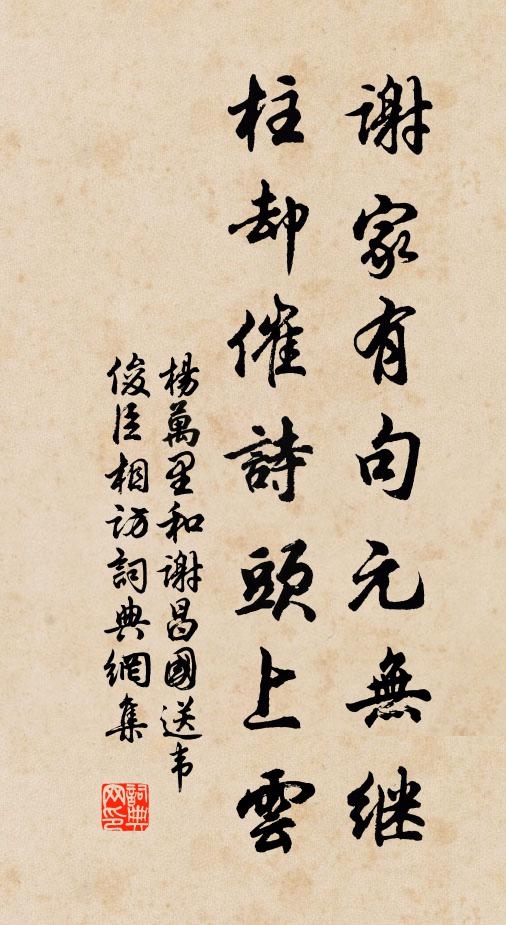 謝家有句元無継
柱却催詩頭上雲
楊萬里和謝昌國送韦
俊臣相訪詞典網集
詞典网印